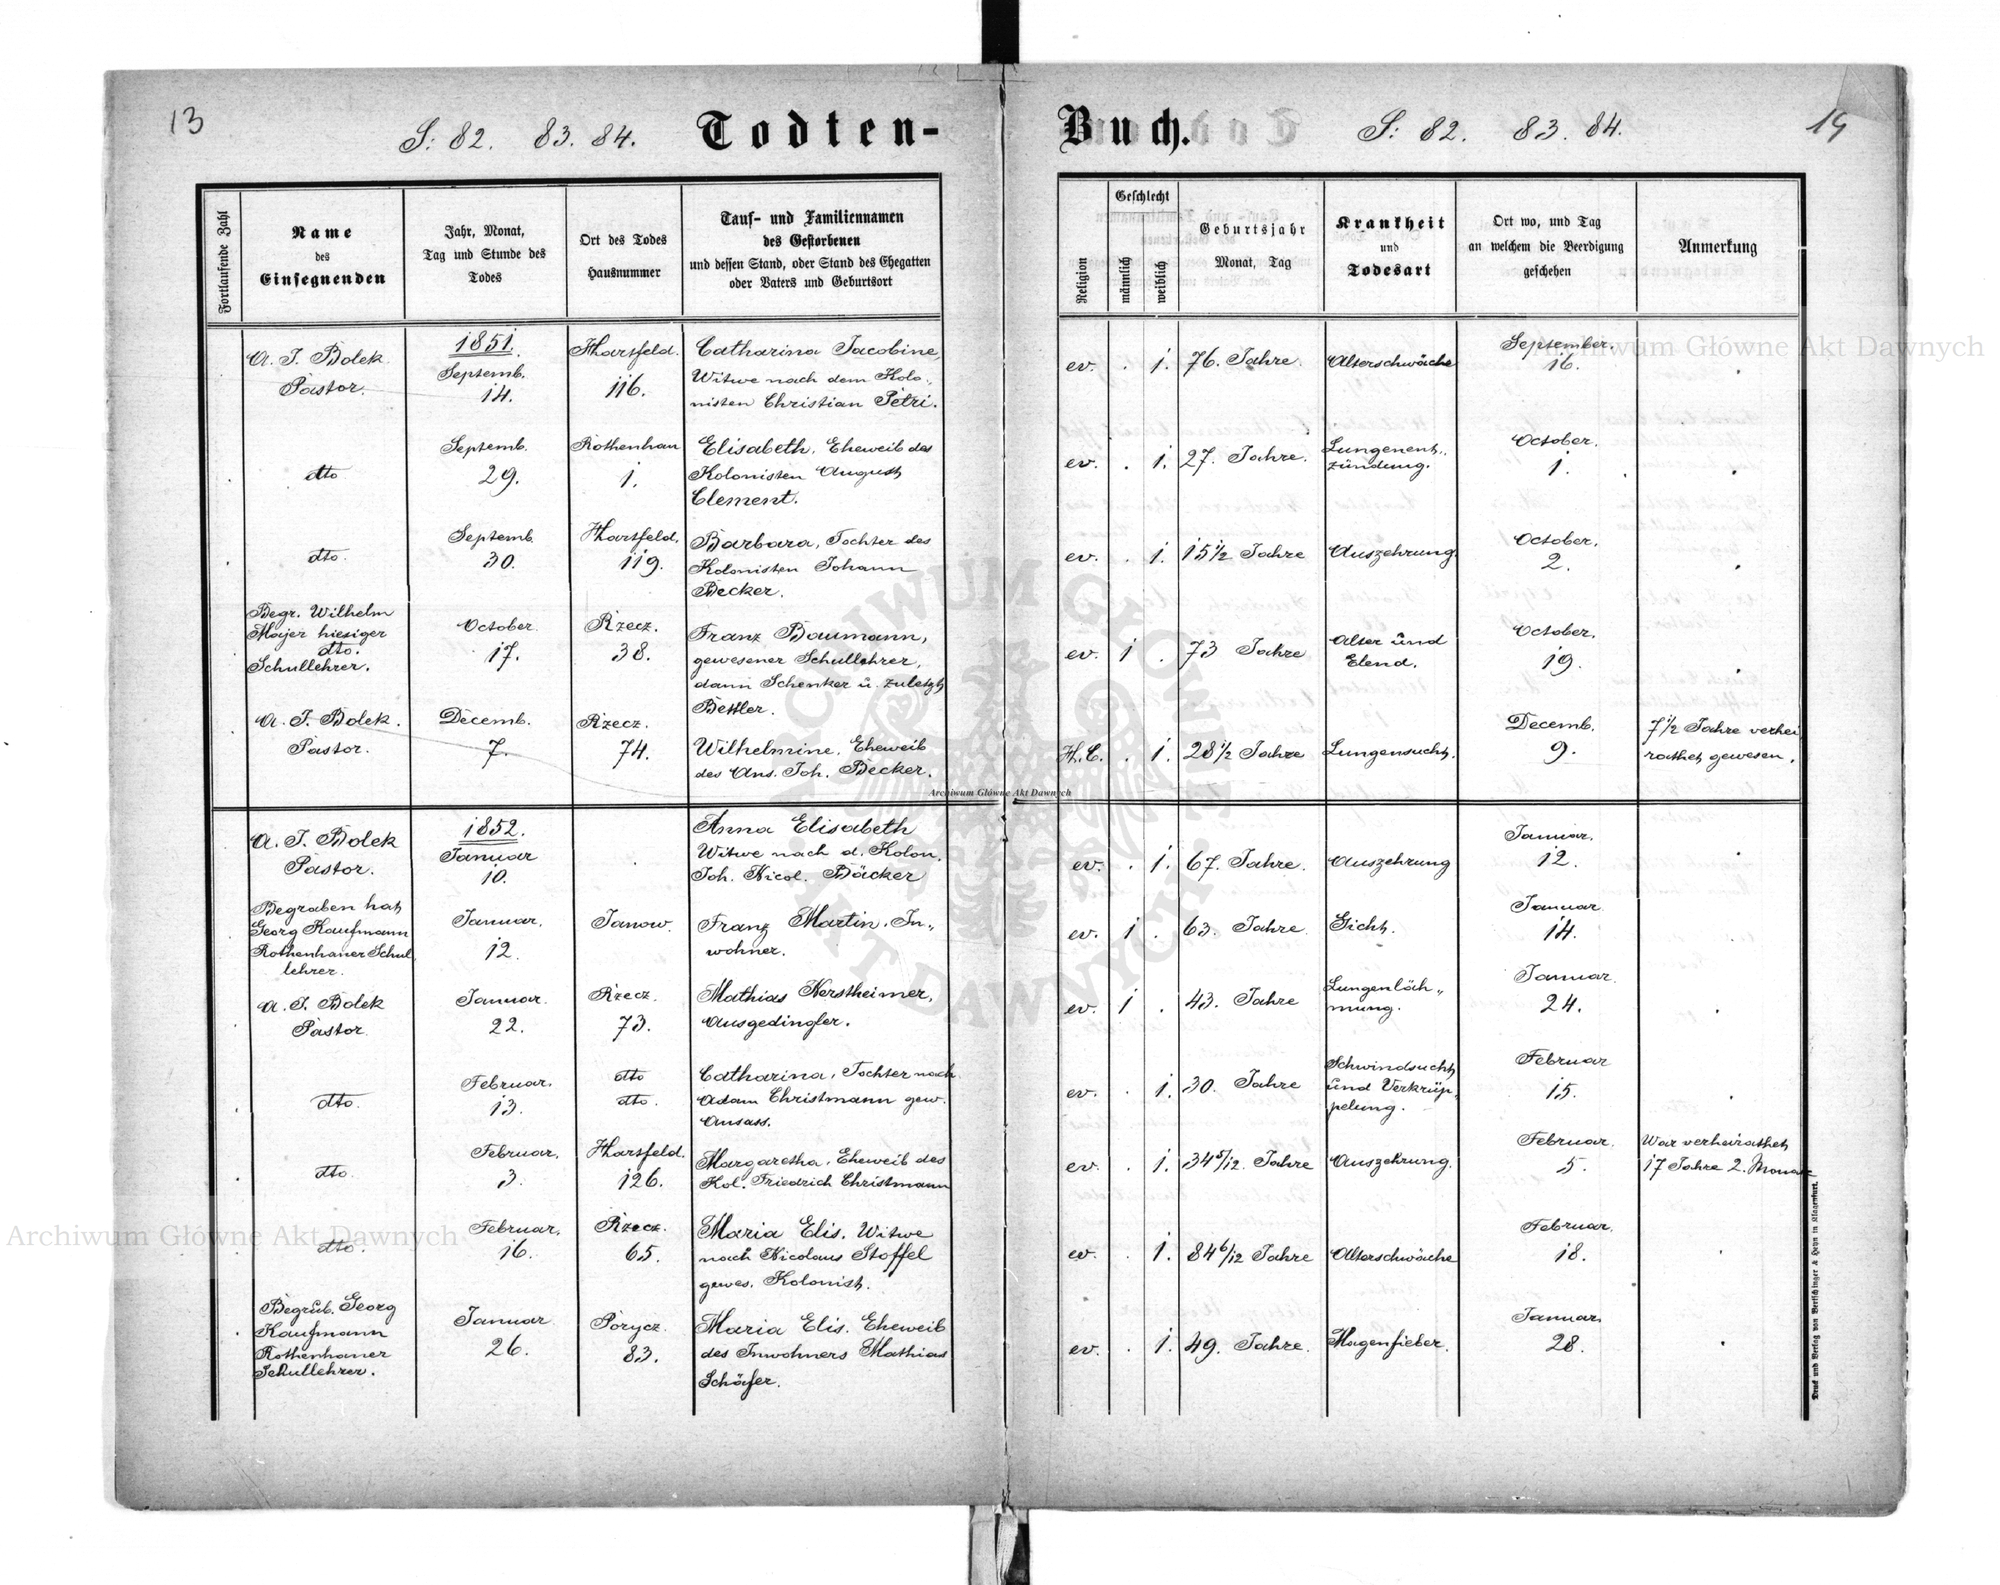 13
S: 82. 83. 84.
Todten-
Buch.
S: 82. 83. 84.
Fortlaufende Zahl
Name
des
Einsegnenden
Jahr, Monat,
Tag und Stunde des
Todes
Ort des Todes
Hausnummer
Tauf- und Familiennamen
des Gestorbenen
und dessen Stand, oder Stand des Ehegatten
oder Vaters und Geburtsort
Religion
Geschlecht
männlich
weiblich
Geburtsjahr
Monat, Tag
Krankheit
und
Todesart
Ort wo, und Tag
an welchem die Beerdigung
geschehen
Anmerkung
A. J. Bolek
Pastor.
1851.
Septemb.
14.
Hartfeld.
116.
Catharina Jacobine,
Witwe nach dem Kolo„
nisten Christian Petri.
ev. . 1. 76. Jahre.
Alterschwäche
September.
16.
dto
Septemb.
29.
Rothenhan
1.
Elisabeth, Eheweib des
Kolonisten August
Clement.
ev. . 1. 27. Jahre.
Lungenent„
zündung.
October.
1.
dto.
Septemb.
30.
Hartfeld.
119.
Barbara, Tochter des
Kolonisten Johann
Becker.
ev. . 1. 15 1/2 Jahre
Auszehrung
October.
2.
Begr. Wilhelm
Majer hiesiger
dto.
Schullehrer.
October.
17.
Rzecz.
38.
Franz Baumann,
gewesener Schullehrer,
dann Schenker u. zuletzt
Bettler.
ev. 1 . 73 Jahre
Alter und
Elend.
October.
19.
A. J. Bolek.
Pastor.
Decemb.
7.
Rzecz.
74.
Wilhelmine, Eheweib
des Ans. Joh. Becker.
H. C. . 1. 28 1/2 Jahre
Lungensucht.
Decemb.
9.
7 1/2 Jahre verhei
rathet gewesen.
A. J. Bolek
Pastor.
1852.
Januar
10.
Anna Elisabeth
Witwe nach d. Kolon.
Joh. Nicol. Bäcker
ev. . 1. 67. Jahre.
Auszehrung
Januar.
12.
Begraben hat
Georg Kaufmann
Rothenhaner Schul
lehrer.
Januar.
12.
Janow.
Franz Martin, In„
wohner.
ev. 1 . 63. Jahre
Gicht.
Januar
14.
A. J. Bolek
Pastor
Januar.
22.
Rzecz.
73.
Mathias Kerstheimer,
Ausgedingler.
ev. 1 . 43. Jahre
Lungenläh„
mung.
Januar
24.
dto.
Februar.
13.
dto
dto.
Catharina, Tochter nach
Adam Christmann gew.
Ansass.
ev. . 1. 30. Jahre
Schwindsucht
und Verkrüp„
pelung.
Februar
15.
dto.
Februar.
3.
Hartfeld.
126.
Margaretha, Eheweib des
Kol. Friedrich Christmann
ev. . 1. 34 5/12. Jahre
Auszehrung.
Februar.
5.
War verheirathet
17 Jahre 2. Monat
dto.
Februar.
16.
Rzecz.
65.
Maria Elis. Witwe
nach Nicolaus Stoffel
gewes. Kolonist.
ev. . 1. 84 6/12 Jahre
Alterschwäche
Februar.
18.
Begrub. Georg
Kaufmann
Rothenhaner
Schullehrer.
Januar
26.
Porycz.
83.
Maria Elis. Eheweib
des Inwohners Mathias
Schäfer.
ev. . 1. 49. Jahre.
Magenfieber.
Januar.
28.
Druck und Verlag von Bertschinger & Heyn in Klagenfurt.
Archiwum Główne Akt Dawnych
Archiwum Główne Akt Dawnych
Archiwum Główne Akt Dawnych
ARCHIWUM GŁÓWNE AKT DAWNYCH